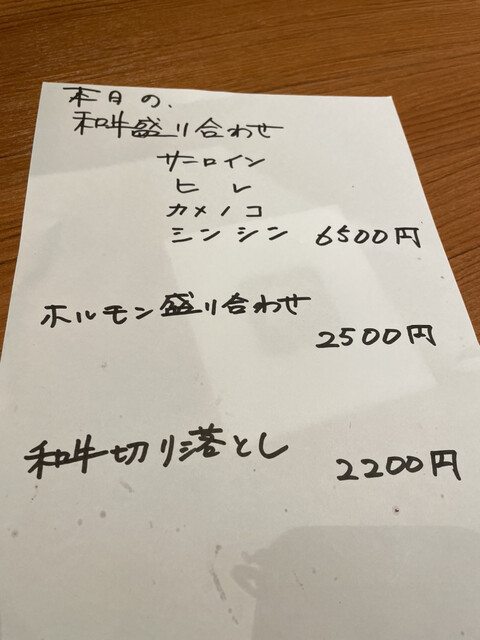 本日の、
和牛盛り合わせ
サーロイン
ヒレ
カメノコ
シンシン 6500円
ホルモン盛り合わせ
2500円
和牛切り落とし
2200円